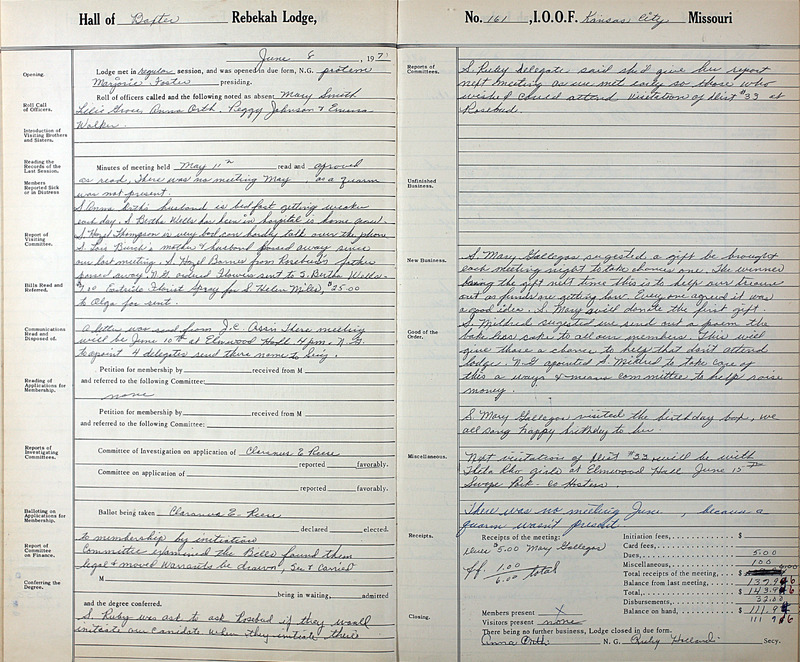 Hall of Baxter Rebekah Lodge,
June 8, 1971
Opening.
Lodge met in regular session, and was opened in due form, N.G. protem
Marjorie Foster presiding.
Roll Call of Officers.
Roll of officers called and the following noted as absent Mary Smith
Lelia Gross, Anna Orth, Peggy Johnson & Emma
Walker.
Introduction of Visiting Brothers and Sisters.
Reading the Records of the Last Session.
Minutes of meeting held May 11th read and aproved
as read, There was no meeting May , as a quarm
was not present.
Members Reported Sick or in Distress
S. Anna Orth's husband is bedfast getting weaker
each day. S. Bertha Wells has been in hospital is home now.
S. Hazel Thompson is very bad, can hardly talk over the phone
Report of Visiting Committee.
S. Lois Burch's mother & husband passed away since
our last meeting. S. Hazel Barnes from Rosebud's father
passed away. N.G. ordered flowers sent to S. Bertha Wells.
Bills Read and Referred.
$7.00 Eastside Florist Spray for S. Helen Miles, $25.00
to Olga for rent.
Communications Read and Disposed of.
A letter was read from J.C. Ass'n There meeting
will be June 10th at Elmwood Hall 4 p.m. N.G.
to apoint 4 delegates send there name to
Reading of Applications for Membership.
Petition for membership by received from M
and referred to the following Committee:
none
Petition for membership by received from M
and referred to the following Committee:
Reports of Investigating Committees.
Committee of Investigation on application of Clarance E Reese
reported favorably.
Committee on application of
reported favorably.
Balloting on Applications for Membership.
Ballot being taken Clarance E. Reese
declared elected.
to membership by initiation
Report of Committee on Finance.
Committee examined the Bills found them
legal & moved warrants be drawn, Sec & Carried
Conferring the Degree.
M
being in waiting, admitted
and the degree conferred.
S. Ruby was ask to ask Rosebud if they would
initiate our canidate when they initiate their
No. 161, I.O.O.F. Kansas City, Missouri
Reports of Committees.
S. Ruby Delegate said she'd give her report
next meeting as we met early so those who
wished could attend Visitation of Dist #33 at
Rosebud.
Unfinished Business.
New Business.
S. Mary Gallegos suggested a gift be brought
each meeting night to take chances one. The winner
bring the gift next time this is to help our treasure
out as funds are getting low. Every one agreed it was
a good idea. S. Mary will donate the first gift.
Good of the Order.
S. Mildred suggested we send out a poem the
bake less cake to all our members. This will
give those a chance to help that don't attend
lodge. N.G. apointed S. Mildred to take care of
this a ways & means committee to help raise
money.
S. Mary Gallegos visited the birthday box, we
all sang happy birthday to her.
Miscellaneous.
Next visitation of Dist #33 will be with
Theta Rho girls at Elmwood Hall June 15th
Swope Park - Co Hosters.
There was no meeting June , because a
quarm wasn't present.
Receipts.
Receipts of the meeting:
dues $5.00 Mary Gallegos
1.00
6.00 total
Initiation fees, $
Card fees,
Dues, 5.00
Miscellaneous, 1.00
Total receipts of the meeting, $ 6.00
Balance from last meeting, 137.96
Total, $ 143.96
Disbursements, 32.00
Balance on hand, $ 111.96
111 96
Closing.
Members present X
Visitors present none
There being no further business, Lodge closed in due form.
Anna Orth N. G. Ruby Holland Secy.